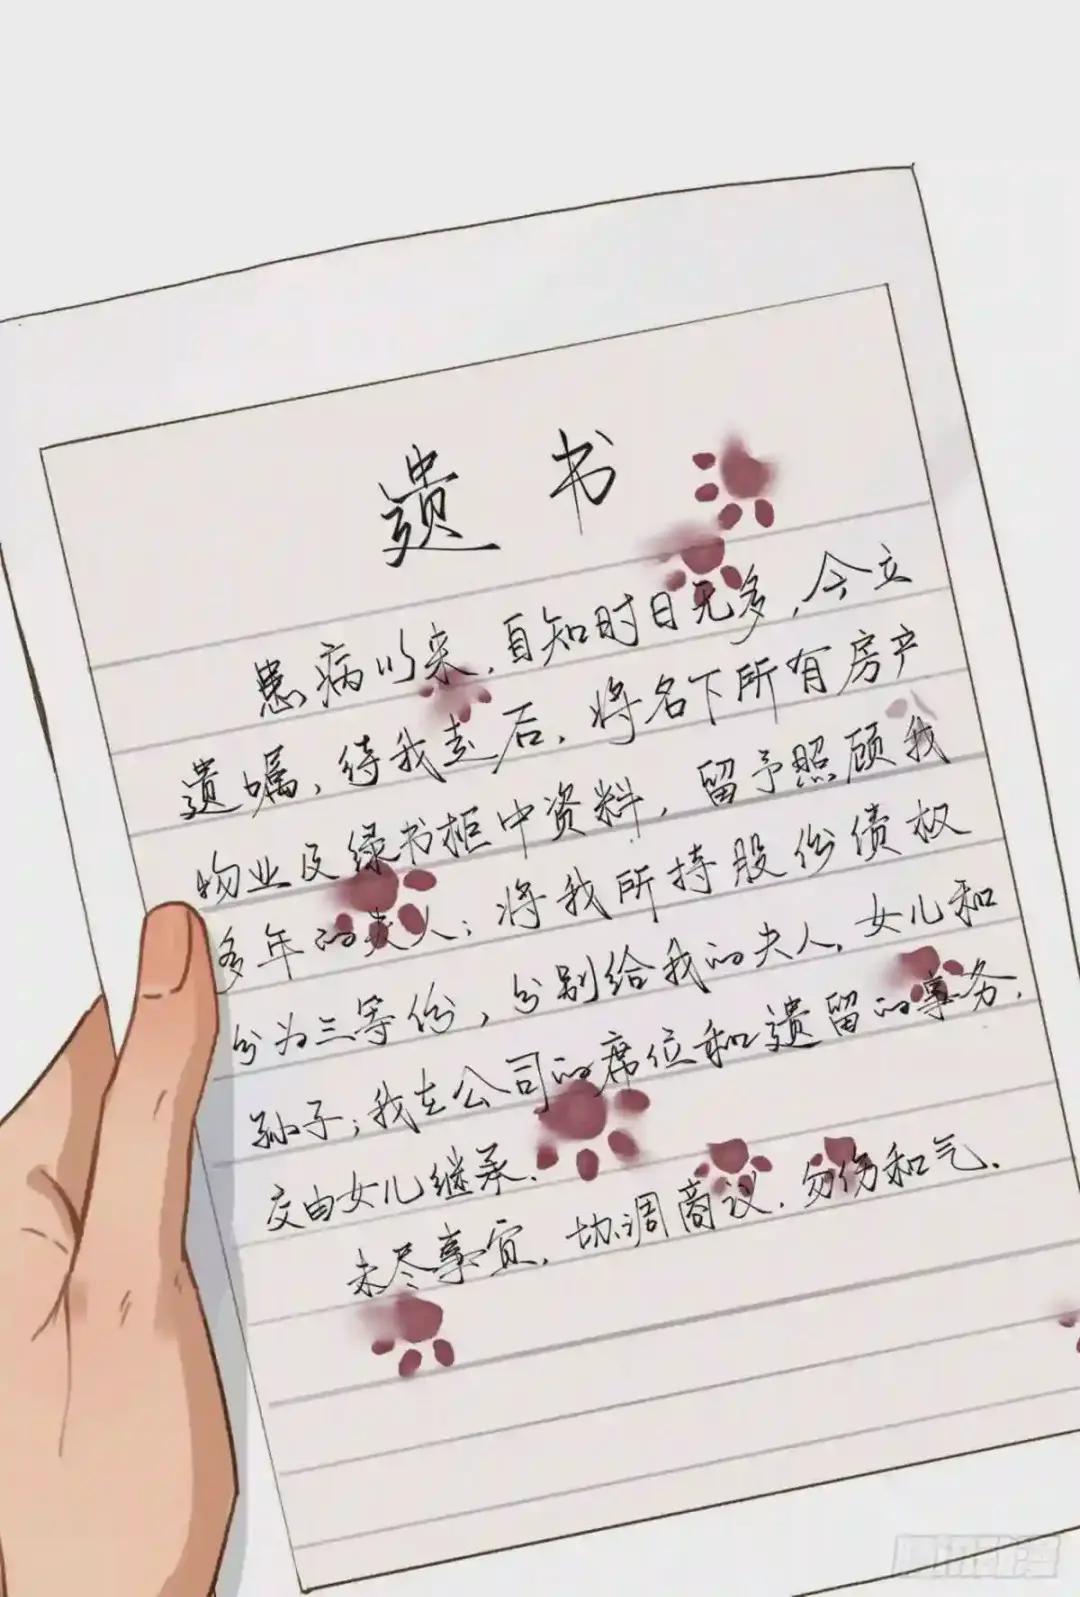 遗书
患病以来，自知时日无多，今立
遗嘱，待我走后，将名下所有房产
物业及绿书柜中资料，留予照顾我
多年的夫人；将我所持股份债权
分为三等份，分别给我的夫人，女儿和
孙子；我在公司的席位和遗留的事务，
交由女儿继承．
未尽事宜，协调商议，勿伤和气．